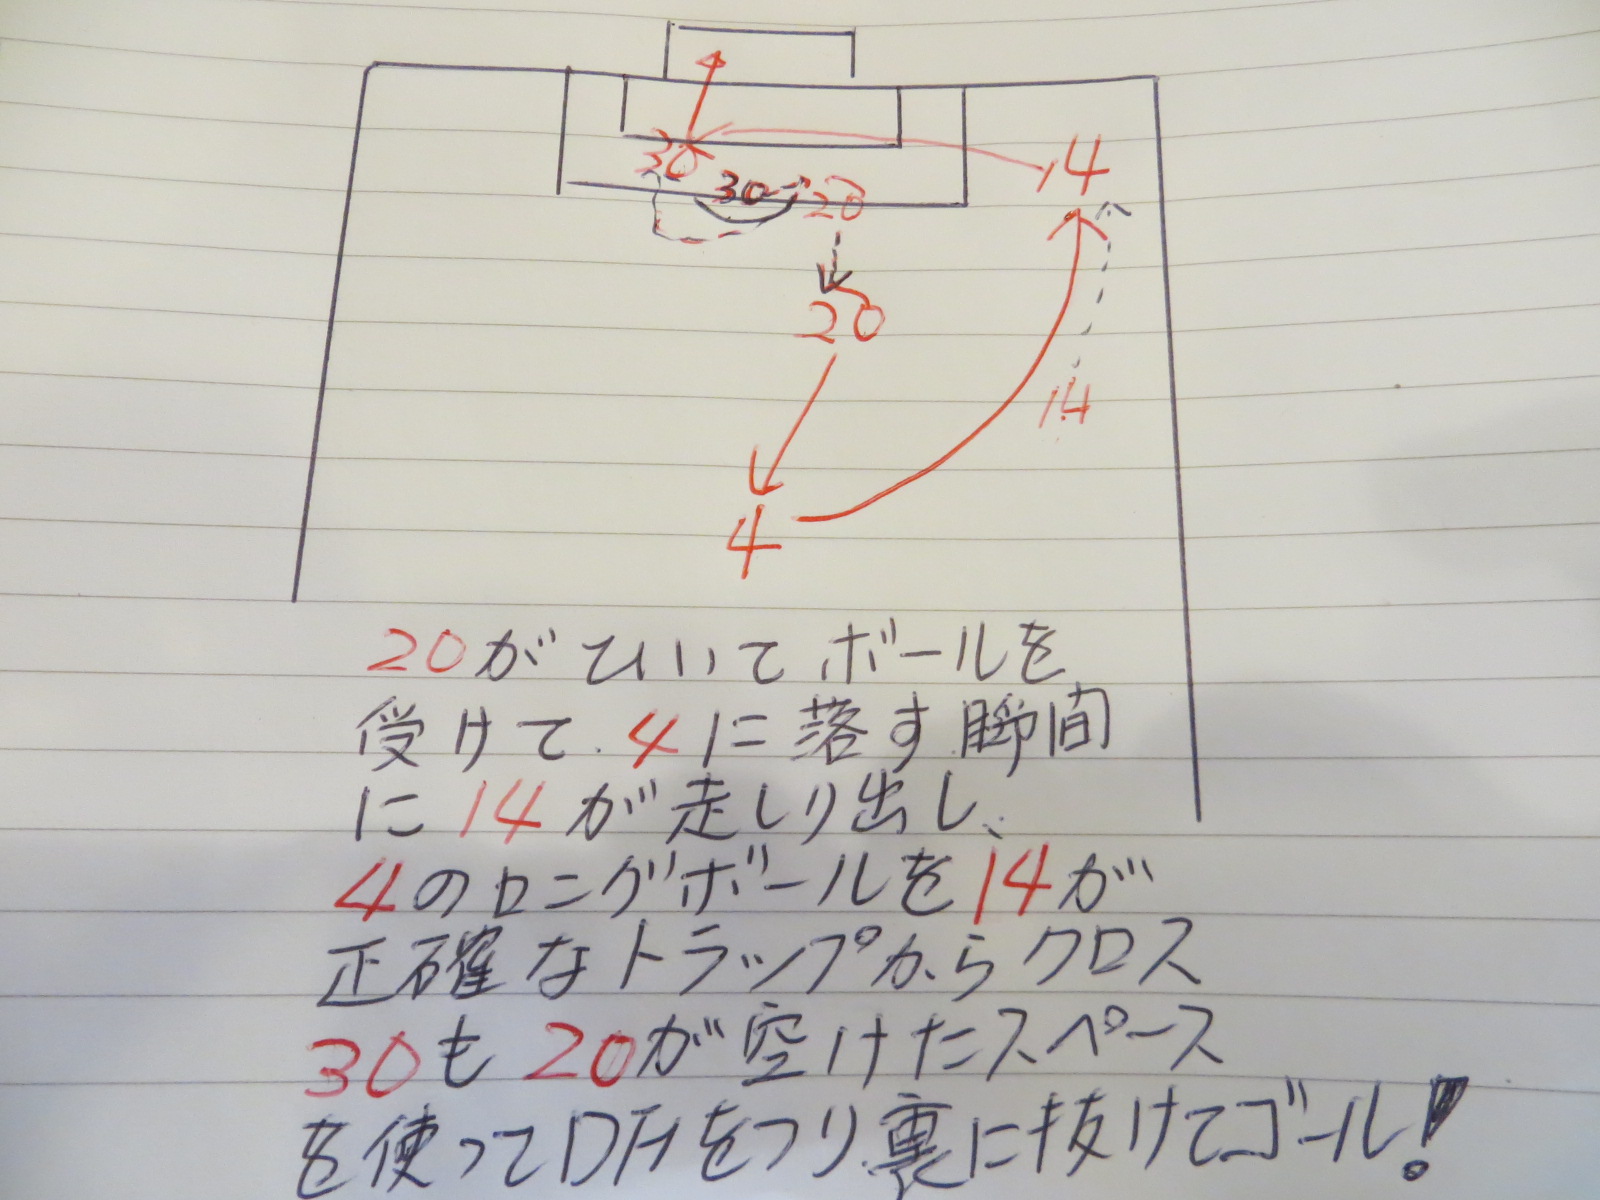 14
30
30
20
20
14
4
20がひいてボールを
受けて.4に落す瞬間
に14が走しり出し、
4のロングボールを14が
正確なトラップからクロス
30も20が空けたスペース
を使ってDFをつり裏に抜けてゴール!